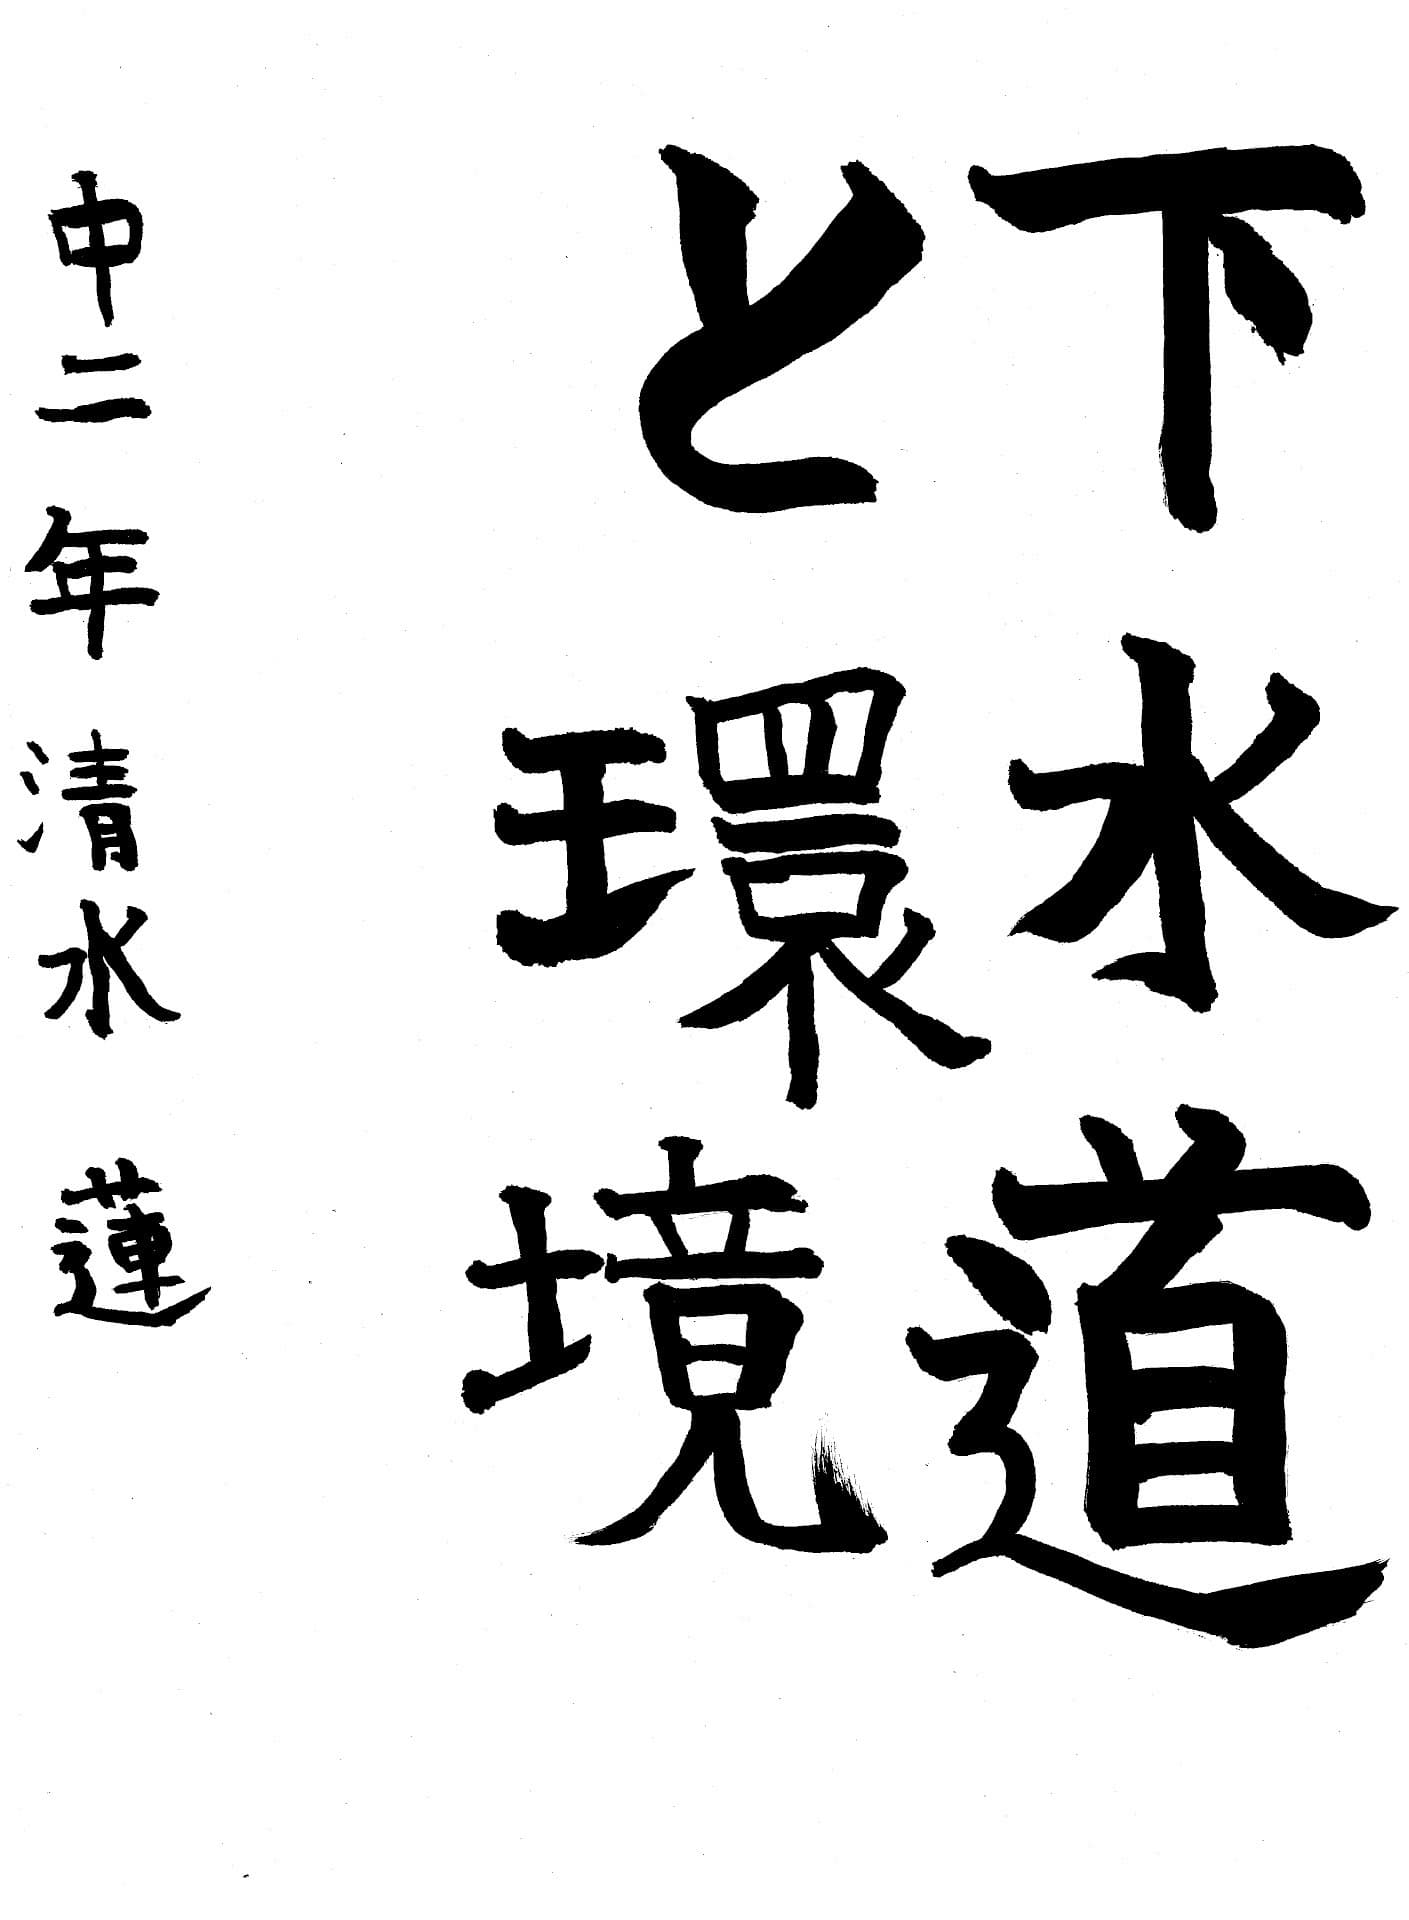 下水道
と環境
中二年 清水 蓮